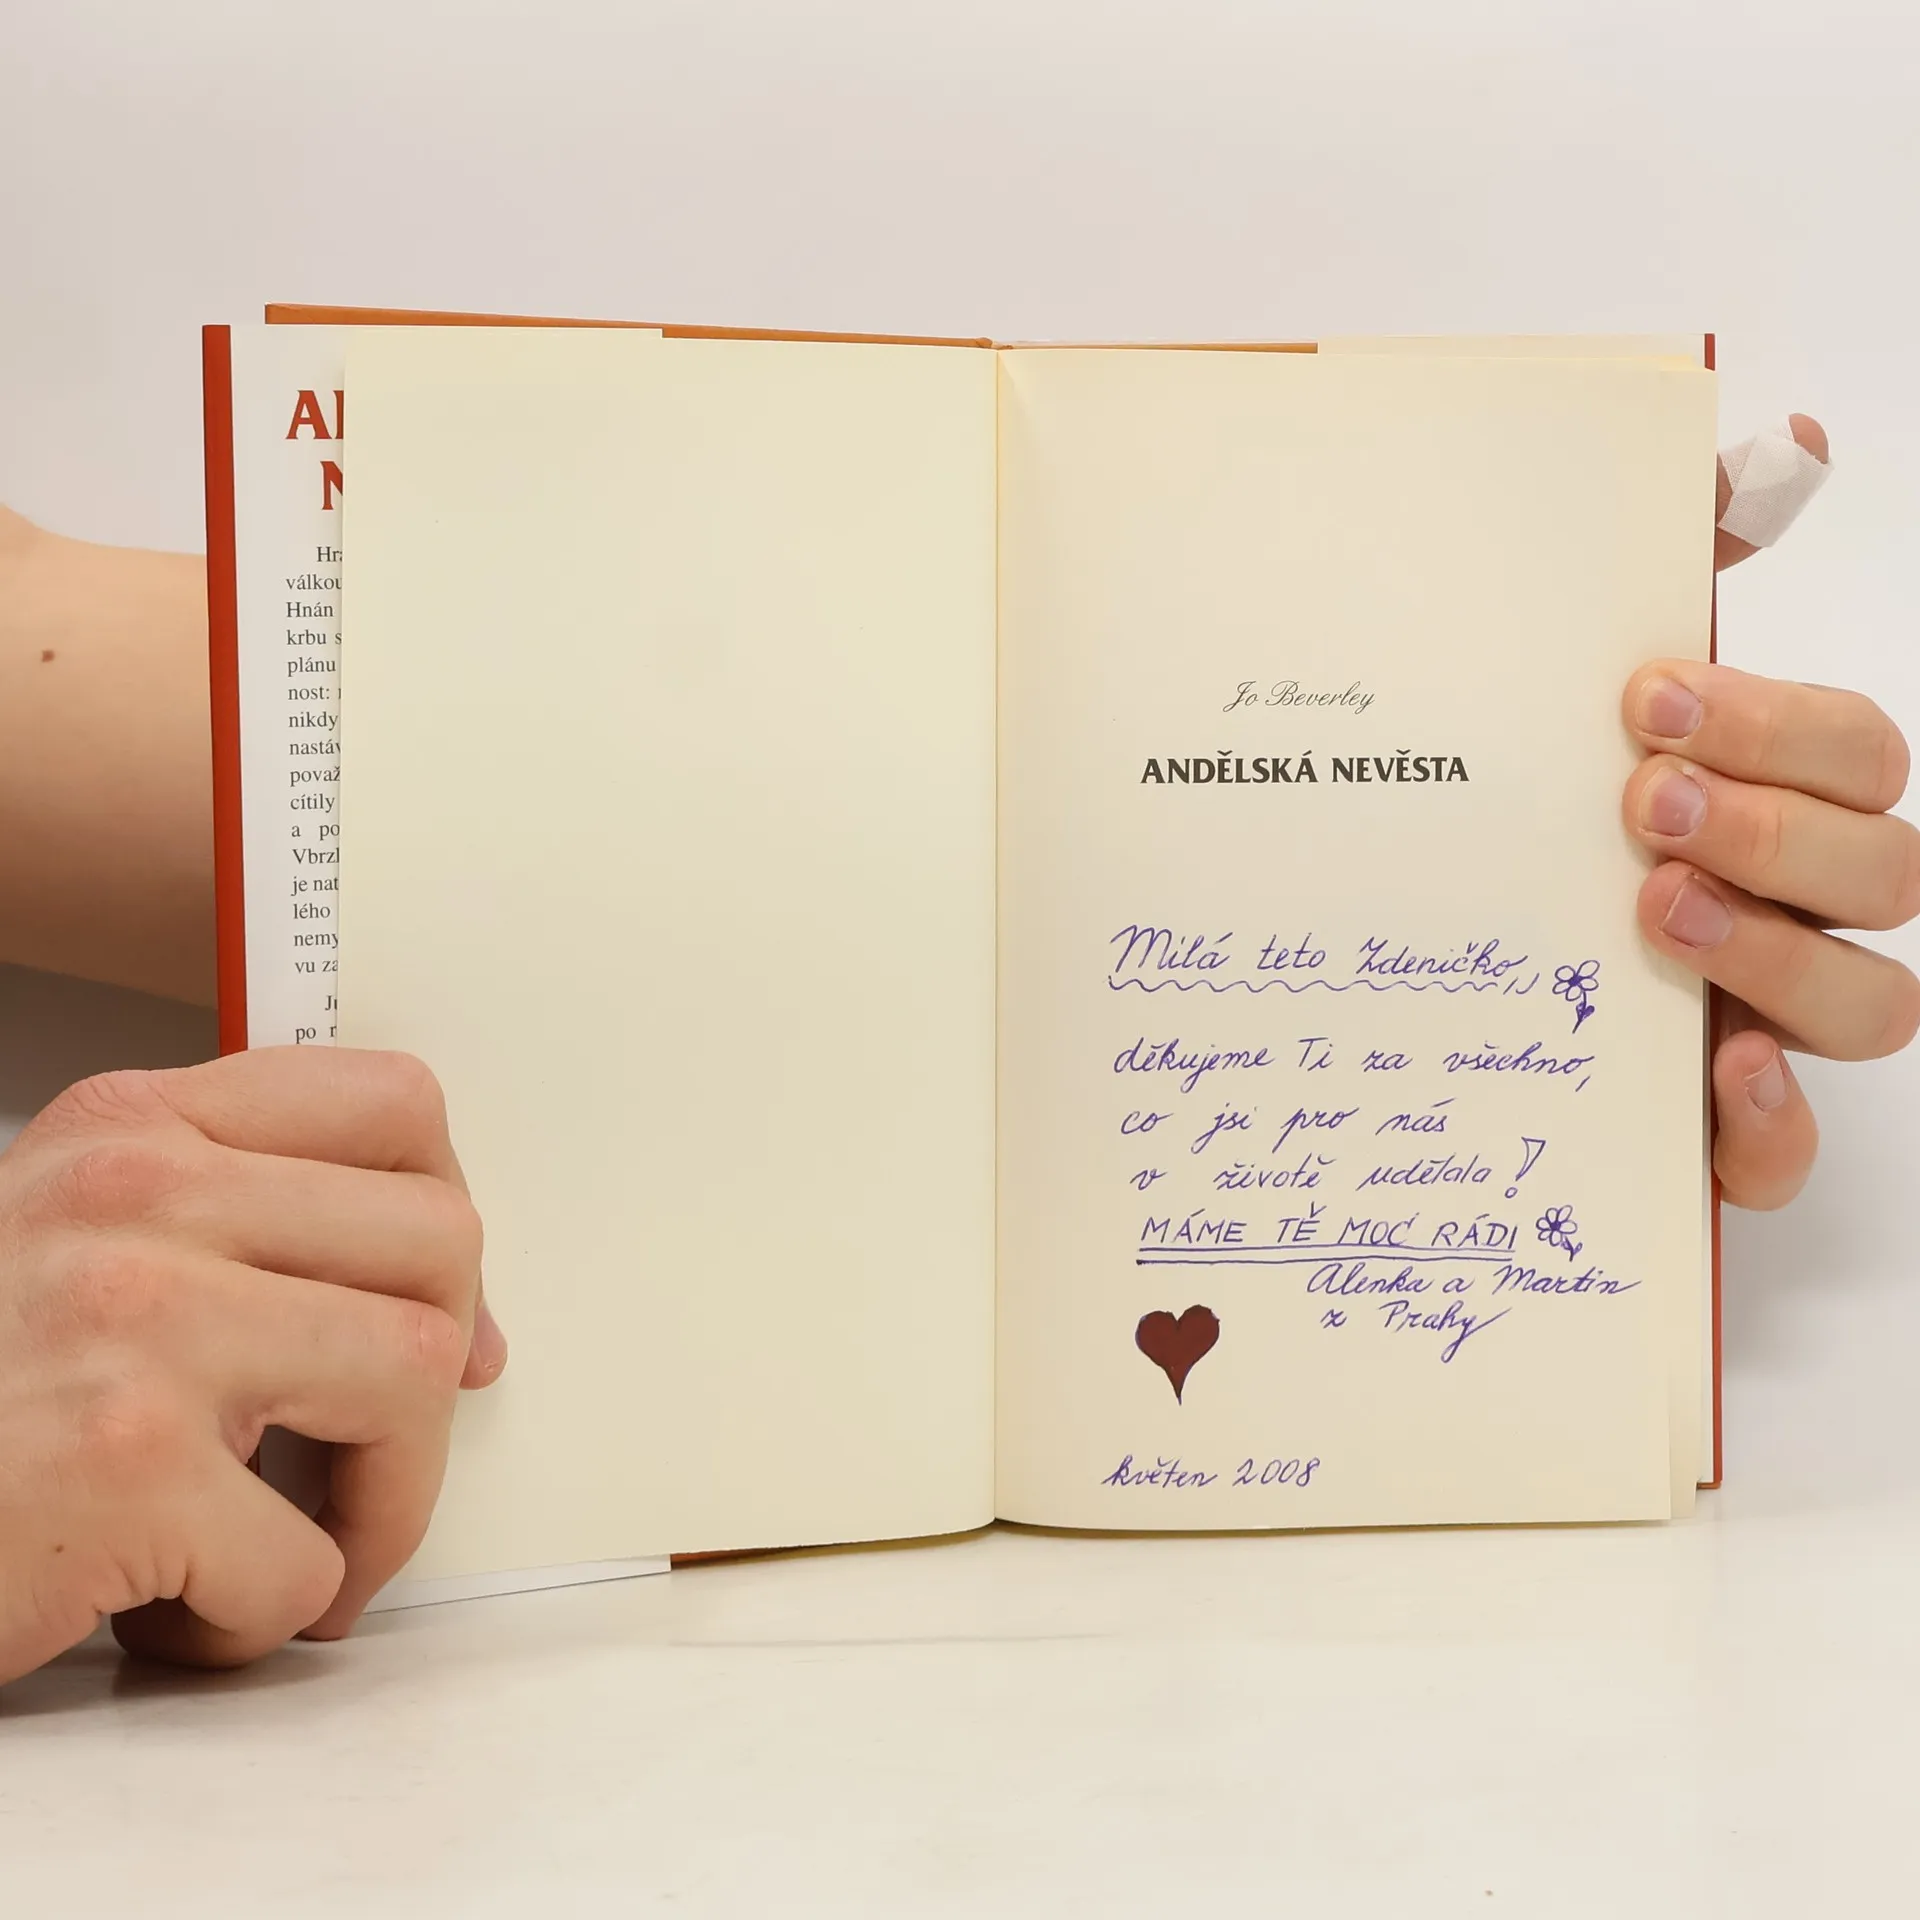 Hra
válkou
Hnán
krbu s
plánu
nost:
nikdy
nastáv
považ
cítily
a po
je nat
lého
nemy
vu za
po
Jo Beverley
ANDĚLSKÁ NEVĚSTA
Milá teto Zdeničko,
děkujeme Ti za všechno,
co jsi pro nás
v životě udělala!
MÁME TĚ MOC RÁDI
Alenka a Martin
z Prahy
květen 2008